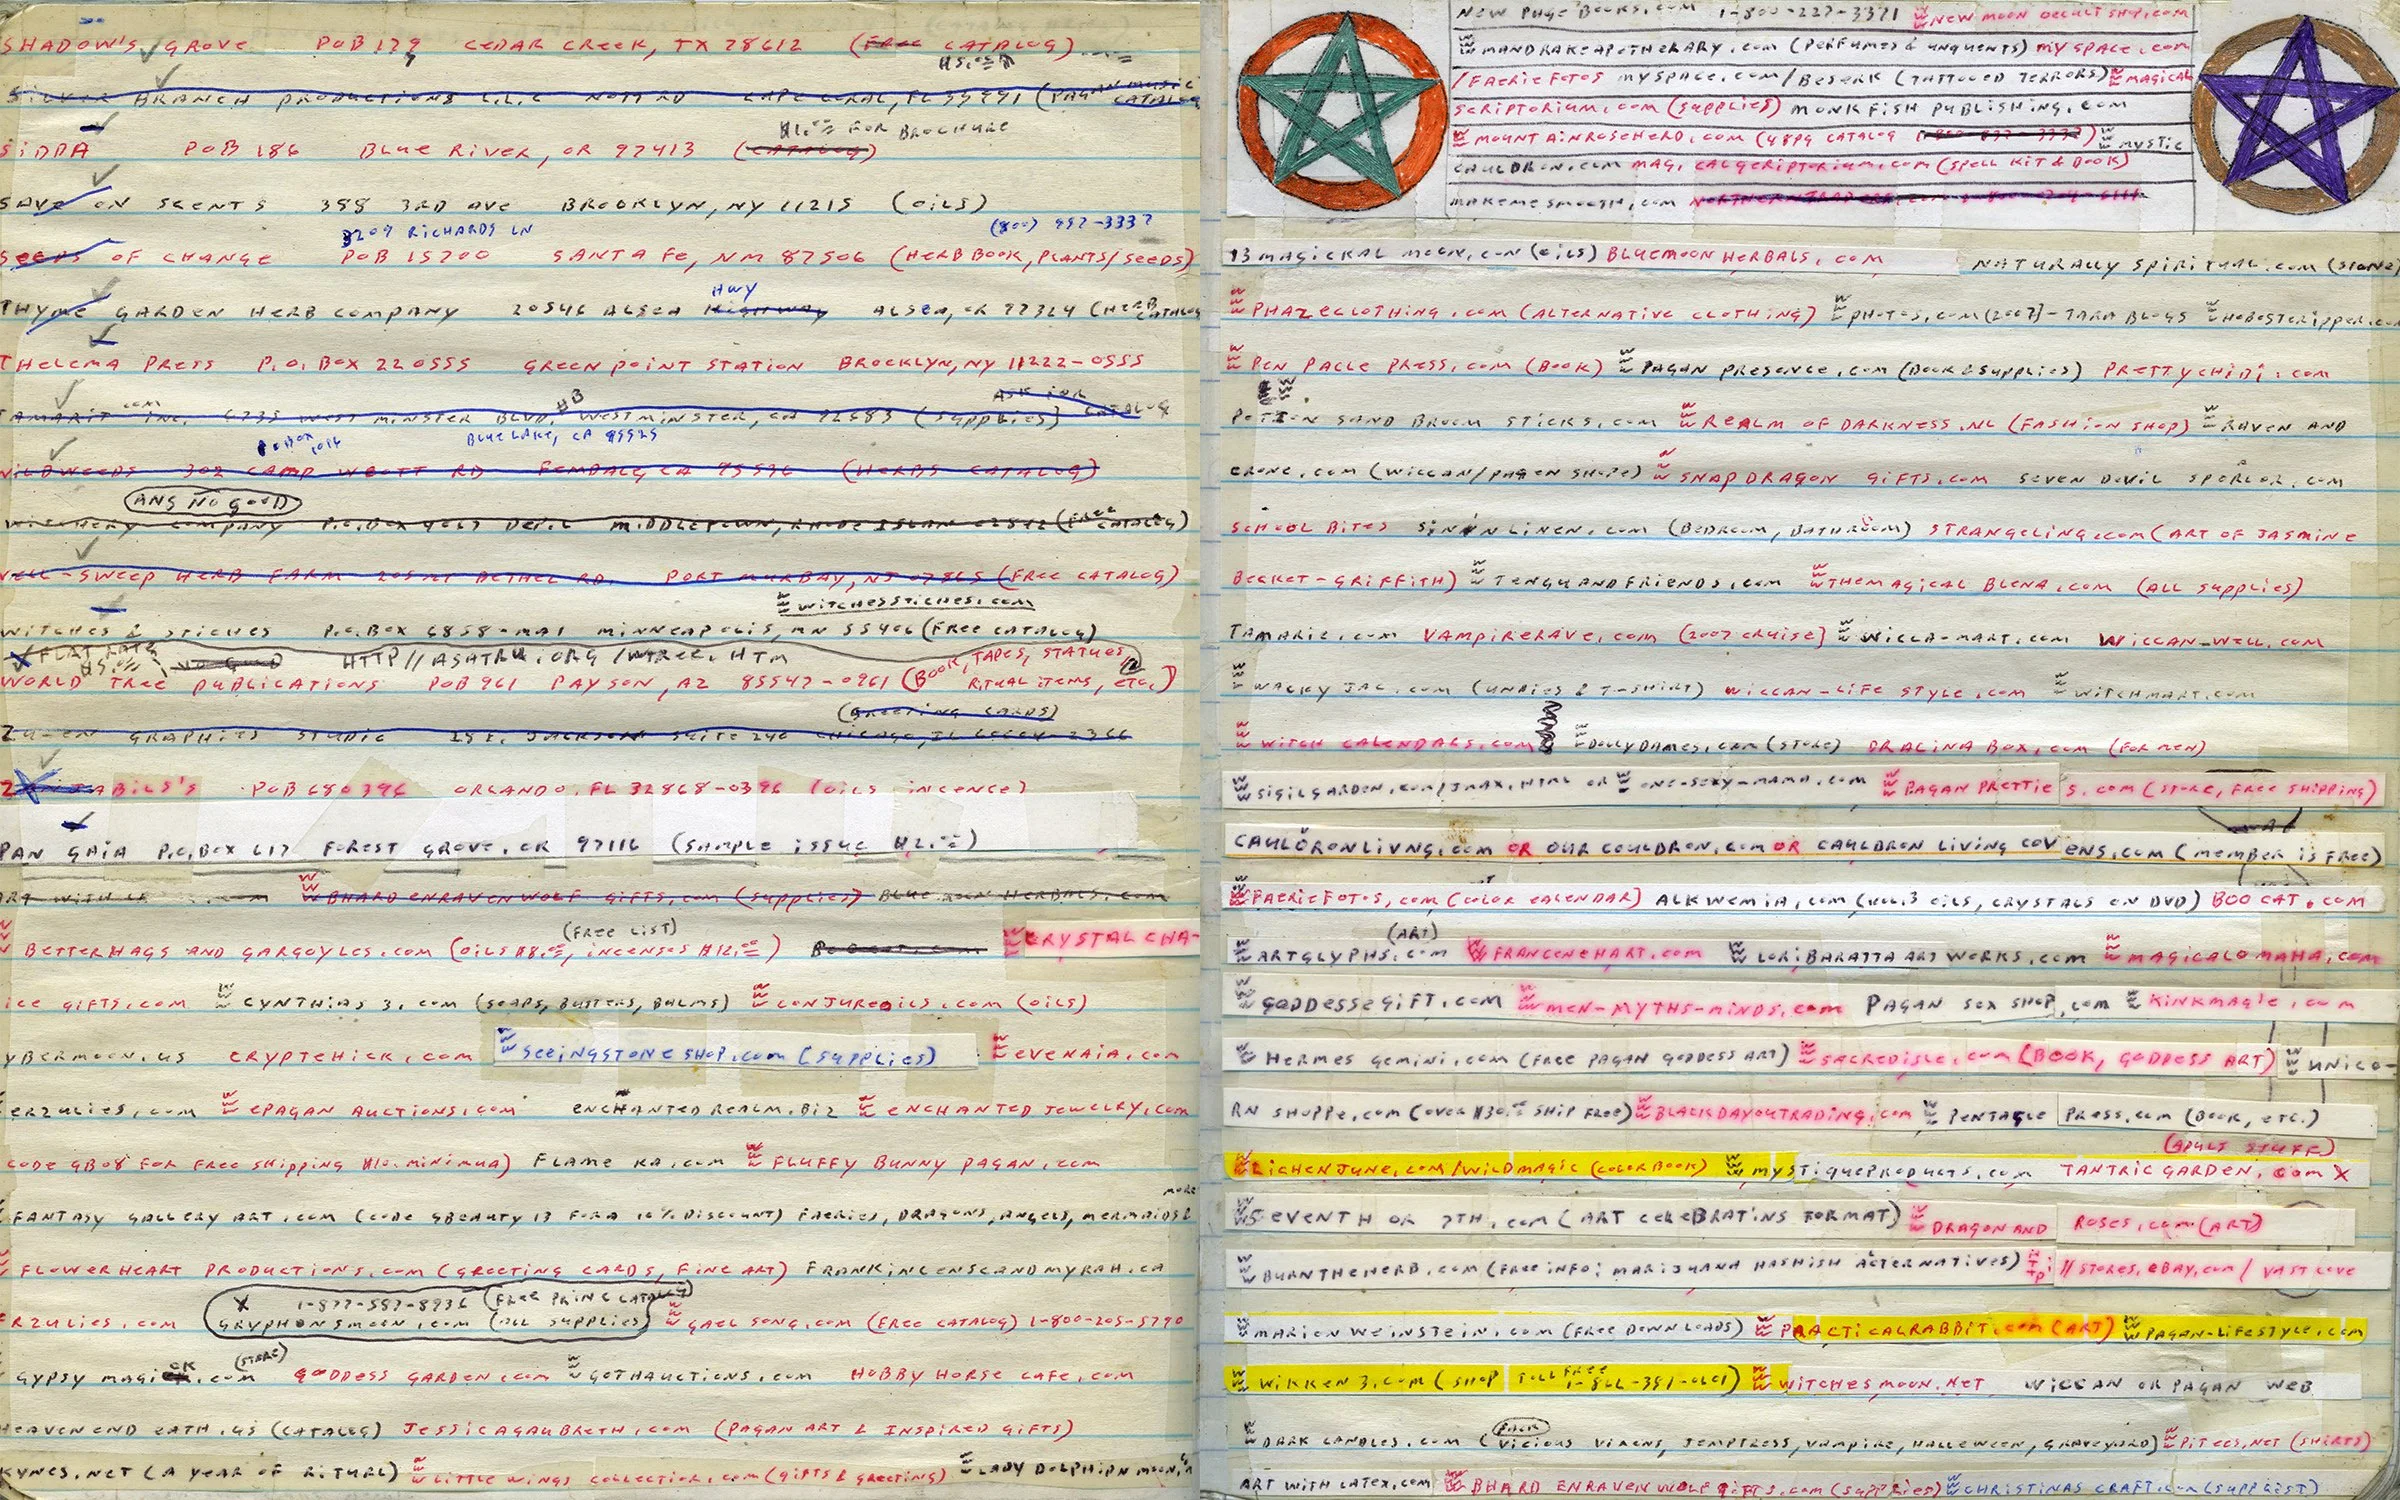 SHADOW'S GROVE POB 179 CEDAR CREEK, TX 78612 (FREE CATALOG)
SILVER BRANCH PRODUCTIONS L.L.C CAPE CORAL, FL 33991 (PAGAN MUSIC CATALOG
$1.00 FOR BROCHURE
SIDDA POB 186 BLUE RIVER, OR 97413 (CATALOG)
SAVE ON SCENTS 388 3RD AVE BROOKLYN, NY 11215 (OILS)
3209 RICHARDS LN (800) 957-3337
SEEDS OF CHANGE POB 15700 SANTA FE, NM 87506 (HERB BOOK, PLANTS/SEEDS)
HWY
THYME GARDEN HERB COMPANY 20546 ALSEA HIGHWAY ALSEA, OR 97324 (HERB CATALOG
THELEMA PRESS P.O. BOX 220555 GREENPOINT STATION BROCKLYN, NY 11222-0555
ASK FOR CATALOG
TAMARIT.COM INC. 6735 WESTMINSTER BLVD. HB WESTMINSTER, CA 92683 (SUPPLIES)
POBOX 1016 BLUE LAKE, CA 95525
WILDWEEDS 302 CAMP WEOTT RD FERNDALE, CA 95536 (HERBS CATALOG)
ANS NO GOOD
WITCHERY COMPANY P.O. BOX MIDDLETOWN, RHODE ISLAN 02842 (FREE CATALOG)
WELL-SWEEP HERB FARM 205 MT BETHEL RD. PORT MURRAY, NJ 07865 (FREE CATALOG)
WWW WITCHESSTICHES.COM
WITCHES & STICHES P.O. BOX 6858-MA1 MINNEAPOLIS, MN 55406 (FREE CATALOG)
FLAT RATE NO GOOD HTTP//ASATRU.ORG/WTREE.HTM
WORLD TREE PUBLICATIONS POB 961 PAYSON, AZ 85547-0961 (BOOK, TAPES, STATUES, RITUAL ITEMS, ETC.)
(GREETING CARDS)
GRAPHICS STUDIO 28 E. JACKSON SUITE CHICAGO, IL 60604-2366
POB 680396 ORLANDO, FL 32868-0396 (OILS INCENCE)
PAN GAIA P.O. BOX 617 FOREST GROVE, OR 97116 (SAMPLE ISSUE $2.00)
WWW BHARD ENRAVENWOLF GIFTS.COM (SUPPLIES) BLUE MOON HERBALS.COM
(FREE LIST)
BETTERHAGS AND GARGOYLES.COM (OILS $8.00, INCENSES $12.00) BOOCAT.COM WWW CRYSTAL CHA-
ICE GIFTS.COM WWW CYNTHIAS 3.COM (SOAPS, BUTTERS, BALMS) WWW CONJUREOILS.COM (OILS)
YBERMOON.US CRYPTCHICK.COM WWW SEEINGSTONE SHOP.COM (SUPPLIES) WWW EVENAIA.COM
ERZULIES.COM WWW EPAGAN AUCTIONS.COM ENCHANTED REALM.BIZ WWW ENCHANTED JEWELRY.COM
CODE GB08 FOR FREE SHIPPING $10. MINIMUM) FLAME KA.COM WWW FLUFFY BUNNY PAGAN.COM
MORE
FANTASY GALLERY ART.COM (CODE GBEAUTY 13 FOR A 10% DISCOUNT) FAERIES, DRAGONS, ANGELS, MERMAIDS &
FLOWERHEART PRODUCTIONS.COM (GREETING CARDS, FINE ART) FRANKINCENSEANDMYRAH.CA
X 1-877-587-8936 (FREE PRINC CATALOG)
ERZULIES.COM GRYPHONSMOON.COM (ALL SUPPLIES) WWW GAEL SONG.COM (FREE CATALOG) 1-800-205-5790
(STORE)
GYPSY MAGICK.COM GODDESS GARDEN.COM WWW GOTHAUCTIONS.COM HOBBY HORSE CAFE.COM
HEAVENEND EATH.US (CATALOG) JESSICAGALBRETH.COM (PAGAN ART & INSPIRED GIFTS)
KYNES.NET (A YEAR OF RITUAL) WWW LITTLE WINGS COLLECTION.COM (GIFTS & GREETING) WWW LADY DOLPHIN MOON.
NEW PAGE BOOKS.COM 1-800-227-3371 WWW NEW MOON OCCULT SHOP.COM
WWW MANDRAKEAPOTHERARY.COM (PERFUMES & UNQUENTS) MYSPACE.COM
/FAERIEFOTOS MYSPACE.COM/BESERK (TATTOOED TERRORS) WWW MAGICAL
SCRIPTORIUM.COM (SUPPLIES) MONKFISH PUBLISHING.COM
WWW MOUNTAINROSEHERD.COM (48PG CATALOG WWW MYSTIC
CAULDRON.COM MAG, CALQCRIPTORIUM.COM (SPELL KIT & BOOK)
MAKEMESMOOTH.COM
13 MAGICKAL MOON.COM (OILS) BLUEMOON HERBALS.COM NATURALLY SPIRITUAL.COM (STONE)
WWW PHAZECLOTHING.COM (ALTERNATIVE CLOTHING) WWW PHOTOS.COM (2007)-TARA BLOGS
WWW PEN PALLE PRESS.COM (BOOK) WWW PAGAN PRESENCE.COM (BOOK & SUPPLIES) PRETTYCHIDI.COM
POTION SAND BROOM STICKS.COM WWW REALM OF DARKNESS.NL (FASHION SHOP) WWW RAVEN AND
CRONE.COM (WICCAN/PAGEN SHOPE) WWW SNAPDRAGON GIFTS.COM SEVEN DEVIL SPARLOR.COM
SCHOOL BITES SININLINEN.COM (BEDROOM, BATHROOM) STRANGELING.COM (ART OF JASMINE
BECKET-GRIFFITH) WWW TENGUANDFRIENDS.COM WWW THEMAGICAL BLEND.COM (ALL SUPPLIES)
TAMARIE.COM VAMPIRERAVE.COM (2007 CRUISE) WWW WICCA-MART.COM WICCAN-WELL.COM
WWW WACKY JAC.COM (UNDIES & T-SHIRT) WICCAN-LIFE STYLE.COM WWW WITCHMART.COM
WWW WITCH CALENDARS.COM WWW DOLLYDAMES.COM (STORE) DRACINA BOX.COM (FOR MEN)
WWW SIGILGARDEN.COM/JMAX.HTML OR WWW ONE-SEXY-MAMA.COM WWW PAGAN PRETTIES.COM (STORE, FREE SHIPPING)
CAULDRONLIVNG.COM OR OUR COULDRON.COM OR CAULDRON LIVING COVENS.COM (MEMBER IS FREE)
WWW FAERIEFOTOS.COM (COLOR CALENDAR) ALKWEMIA.COM (VOL.3 OILS, CRYSTALS ON DVD) BOO CAT.COM
(ART)
WWW ARTGLYPHS.COM WWW FRANCENEHART.COM WWW LORIBARATTA ART WORKS.COM WWW MAGICALOMAHA.COM
WWW GODDESSEGIFT.COM WWW MEN-MYTHS-MINDS.COM PAGAN SEX SHOP.COM WWW KINKMAGIC.COM
WWW HERMES GEMINI.COM (FREE PAGAN GODDESS ART) WWW SACREDISLE.COM (BOOK, GODDESS ART) WWW UNICO-
RN SHOPPE.COM (OVER $30.00 SHIP FREE) WWW BLACKDAYOUTRADING.COM WWW PENTACLE PRESS.COM (BOOK, ETC.)
(ADULT STUFF)
WWW LICHENJUNE.COM/WILDMAGIC (COLORBOOK) WWW MYSTIQUEPRODUCTS.COM TANTRIC GARDEN.COM X
WWW SEVENTH OR 7TH.COM (ART CELEBRATINS FORMAT) WWW DRAGON AND ROSES.COM (ART)
WWW BURNTHEHERB.COM (FREE INFO: MARIJUANA HASHISH ALTERNATIVES) HTTP://STORES.EBAY.COM/VASTLOVE
WWW MARION WEINSTEIN.COM (FREE DOWNLOADS) WWW PRACTICALRABBIT.COM (ART) WWW PAGAN-LIFESTYLE.COM
WWW WIKKEN 3.COM (SHOP TOLL FREE 1-866-381-0101) WWW WITCHESMOON.NET WICCAN OR PAGAN WEB
WWW DARK CANDLES.COM (VICIOUS VIXENS, TEMPTRESS, VAMPIRE, HALLOWEEN, GRAVEYARD) WWW PITEES.NET (SHIRTS)
ART WITH LATEX.COM WWW BHARD ENRAVENWOLF GIFTS.COM (SUPPLIES) WWW CHRISTINAS CRAFT.COM (SUPPLIEST)